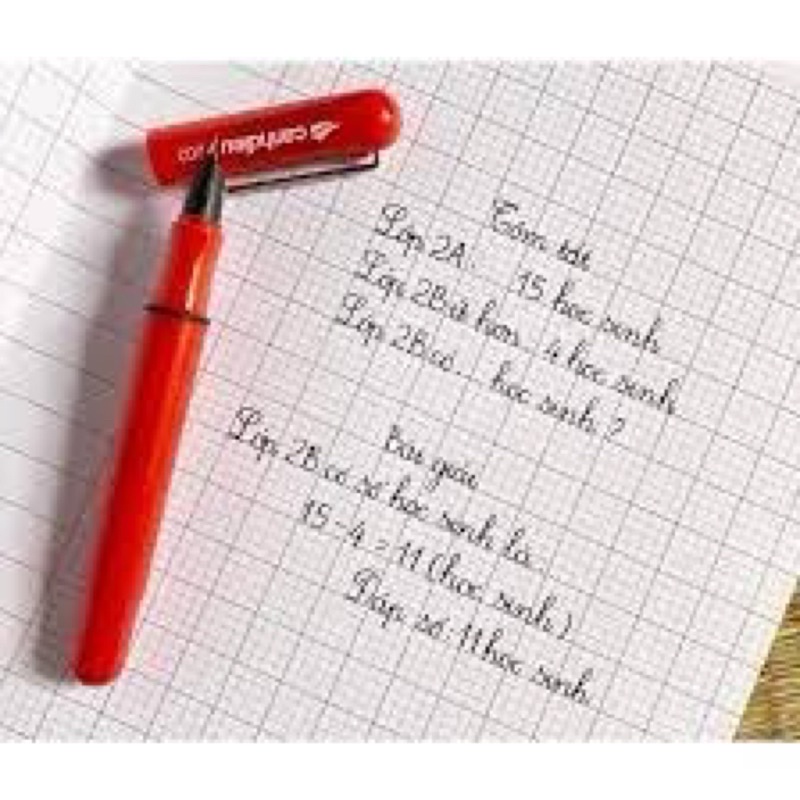 canhdieu
Tóm tắt
Lớp 2A: 15 học sinh
Lớp 2B ít hơn: 4 học sinh
Lớp 2B có: ... học sinh?
Bài giải
Lớp 2B có số học sinh là:
15 - 4 = 11 (học sinh)
Đáp số: 11 học sinh